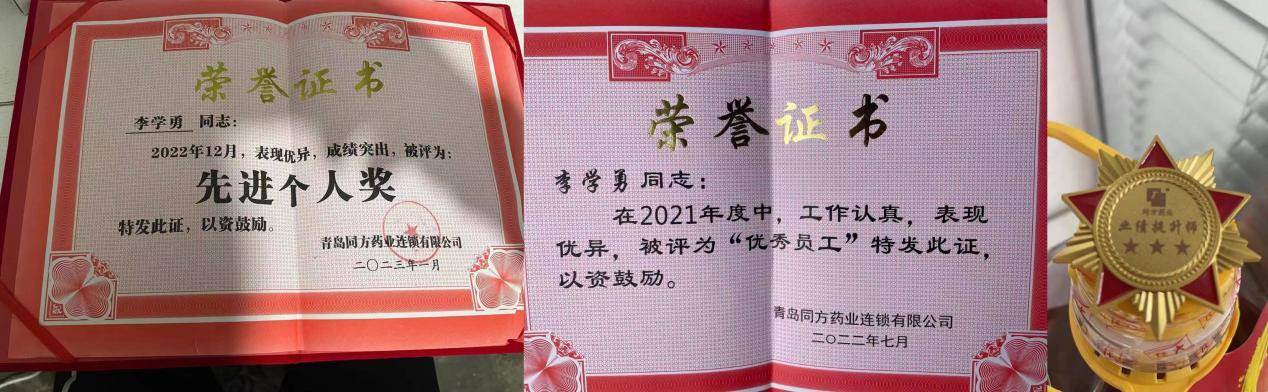 荣誉证书
李学勇 同志:
2022年12月,表现优异,成绩突出,被评为:
先进个人奖
特发此证,以资鼓励。
青岛同方药业连锁有限公司
二〇二三年一月
荣誉证书
李学勇 同志:
在2021年度中,工作认真,表现
优异,被评为“优秀员工”特发此证,
以资鼓励。
青岛同方药业连锁有限公司
二〇二二年七月
同方药业
业绩提升师